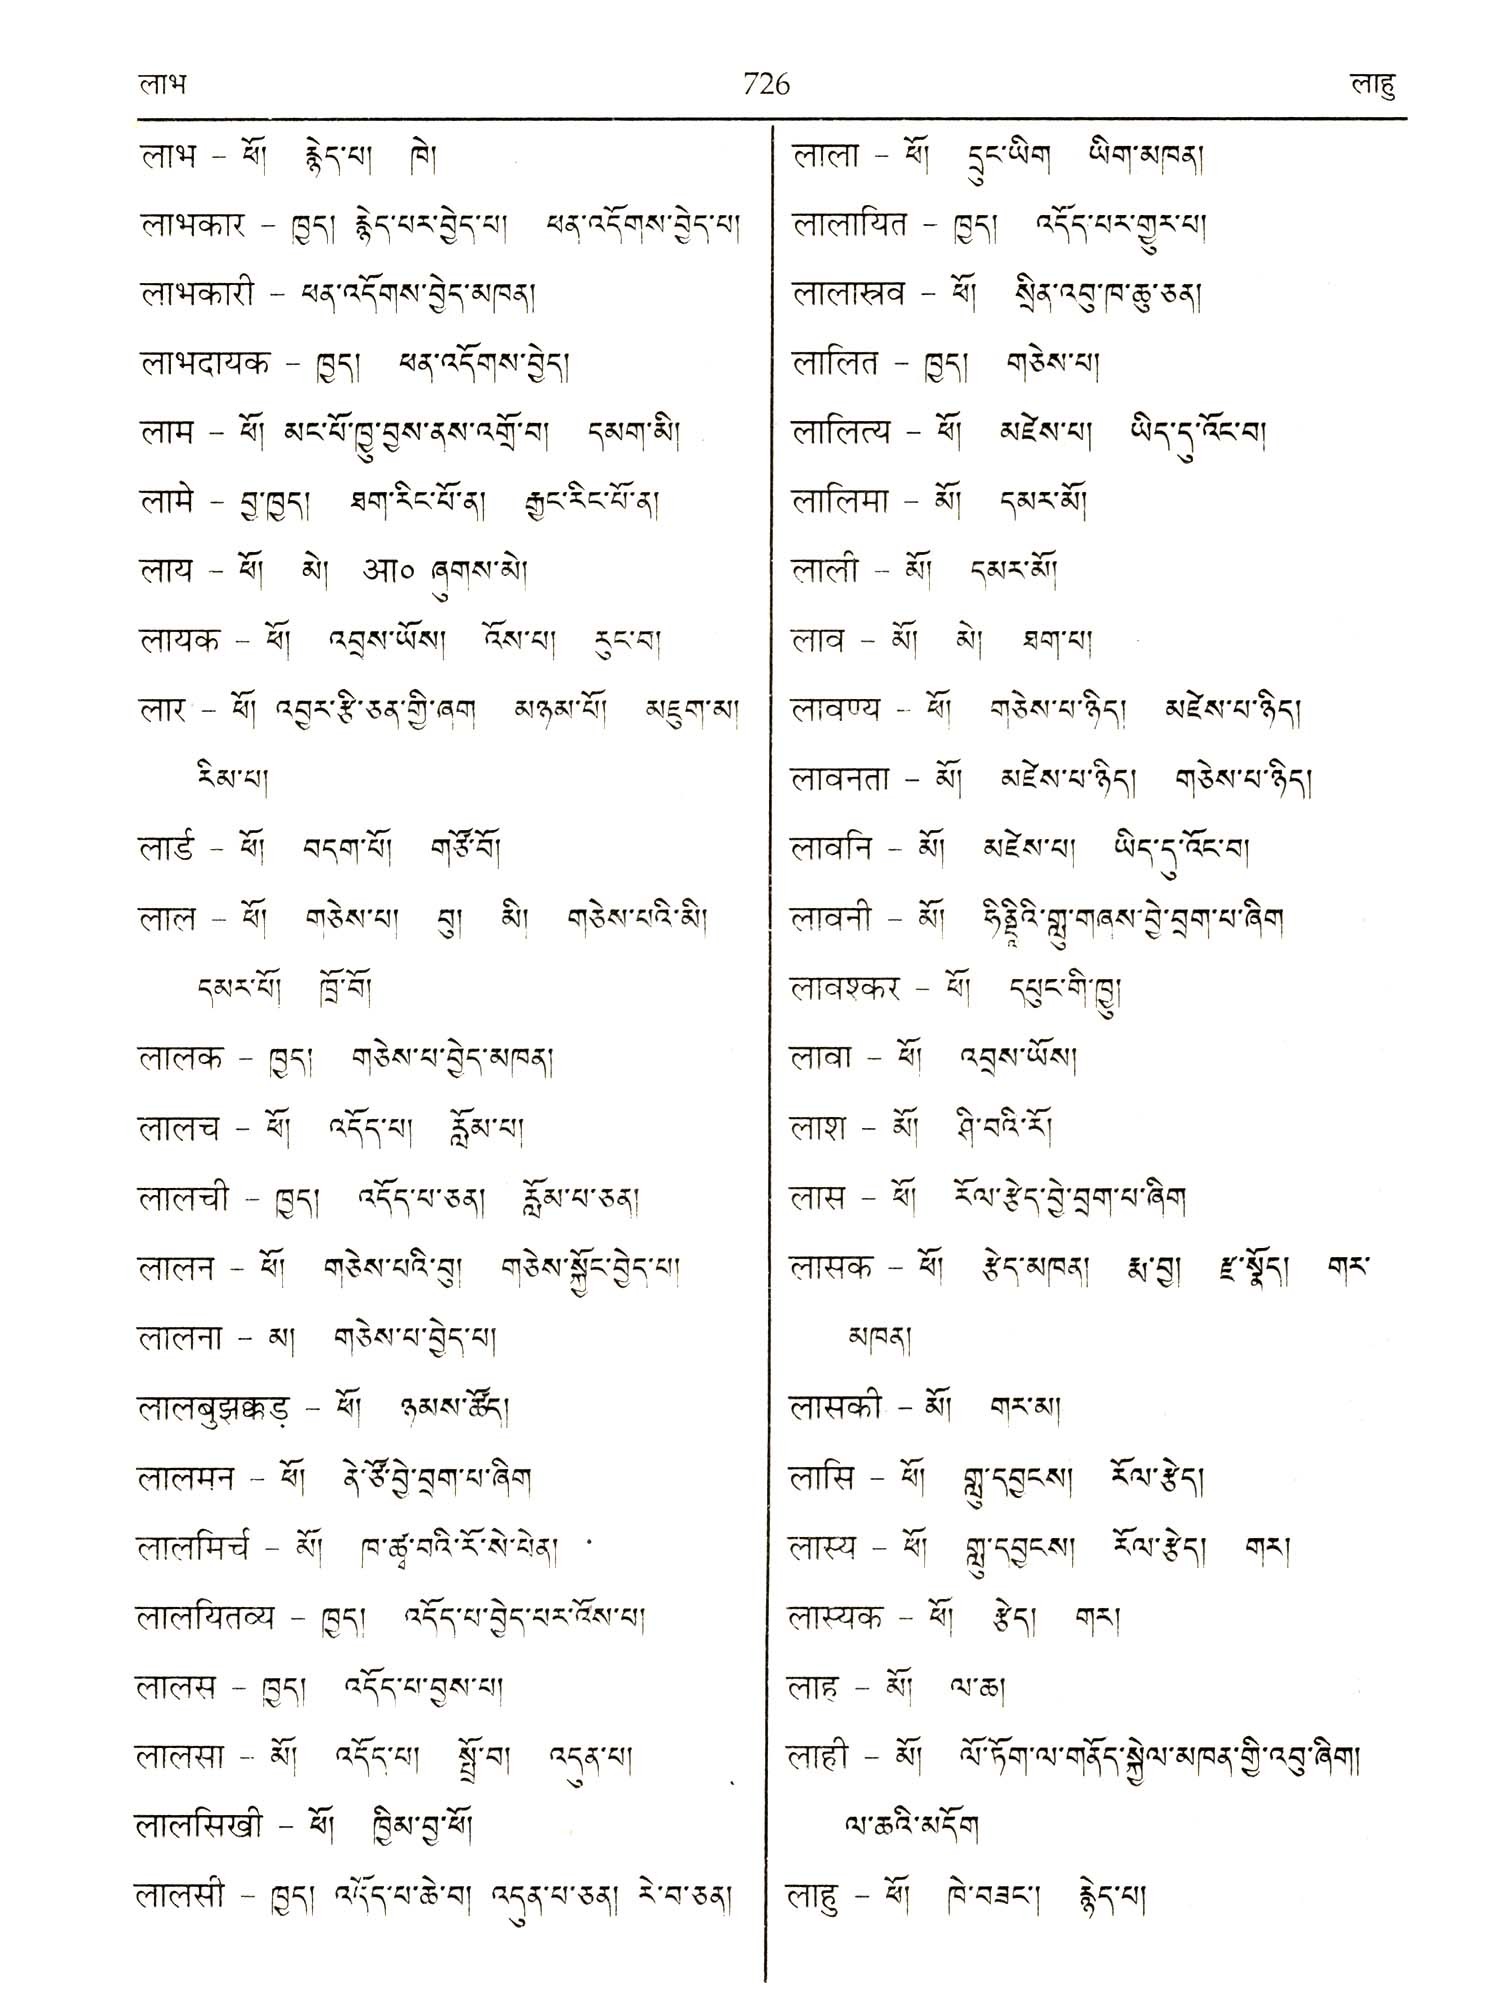 लाभ 726 लाहु
लाभ – ཕོ། རྙེད་པ། ཁེ།
लाभकार – ཁྱད། རྙེད་པར་བྱེད་པ། ཕན་འདོགས་བྱེད་པ།
लाभकारी – ཕན་འདོགས་བྱེད་མཁན།
लाभदायक – ཁྱད། ཕན་འདོགས་བྱེད།
लाम – ཕོ། མང་པོ་ཁྱུ་བྱས་ནས་འགྲོ་བ། དམག་མི།
लामे – བྱ་ཁྱད། ཐག་རིང་པོ་ན། རྒྱང་རིང་པོ་ན།
लाय – ཕོ། མེ། आ० ཞུགས་མེ།
लायक – ཕོ། འབྲས་ཡོས། འོས་པ། རུང་བ།
लार – ཕོ། འབྱར་རྩི་ཅན་གྱི་ཞག མཉམ་པོ། མཇུག་མ།
རིམ་པ།
लार्ड – ཕོ། བདག་པོ། གཙོ་བོ།
लाल – ཕོ། གཅེས་པ། བུ། མི། གཅེས་པའི་མི།
དམར་པོ། ཁྲོ་བོ།
लालक – ཁྱད། གཅེས་པ་བྱེད་མཁན།
लालच – ཕོ། འདོད་པ། རློམ་པ།
लालची – ཁྱད། འདོད་པ་ཅན། རློམ་པ་ཅན།
लालन – ཕོ། གཅེས་པའི་བུ། གཅེས་སྐྱོང་བྱེད་པ།
लालना – མ། གཅེས་པ་བྱེད་པ།
लालबुझक्कड़ – ཕོ། ཉམས་ཚོད།
लालमन – ཕོ། ནེ་ཙོ་བྱེ་བྲག་པ་ཞིག
लालमिर्च – མོ། ཁ་ཚྭ་བའི་རོ་སེ་པེན།
लालयितव्य – ཁྱད། འདོད་པ་བྱེད་པར་འོས་པ།
लालस – ཁྱད། འདོད་པ་བྱས་པ།
लालसा – མོ། འདོད་པ། སྤྲོ་བ། འདུན་པ།
लालसिखी – ཕོ། ཁྱིམ་བྱ་ཕོ།
लालसी – ཁྱད། འདོད་པ་ཆེ་བ། འདུན་པ་ཅན། རེ་བ་ཅན།
लाला – ཕོ། དྲུང་ཡིག ཡིག་མཁན།
लालायित – ཁྱད། འདོད་པར་གྱུར་པ།
लालास्रव – ཕོ། སྲིན་འབུ་ཁ་ཆུ་ཅན།
लालित – ཁྱད། གཅེས་པ།
लालित्य – ཕོ། མཛེས་པ། ཡིད་དུ་འོང་བ།
लालिमा – མོ། དམར་མོ།
लाली – མོ། དམར་མོ།
लाव – མོ། མེ། ཐག་པ།
लावण्य – ཕོ། གཅེས་པ་ཉིད། མཛེས་པ་ཉིད།
लावनता – མོ། མཛེས་པ་ཉིད། གཅེས་པ་ཉིད།
लावनि – མོ། མཛེས་པ། ཡིད་དུ་འོང་བ།
लावनी – མོ། ཧིནྡཱིའི་གླུ་གཞས་བྱེ་བྲག་པ་ཞིག
लावश्कर – ཕོ། དཔུང་གི་ཁྱུ།
लावा – ཕོ། འབྲས་ཡོས།
लाश – མོ། ཤི་བའི་རོ།
लास – ཕོ། རོལ་རྩེད་བྱེ་བྲག་པ་ཞིག
लासक – ཕོ། རྩེད་མཁན། རྨ་བྱ། རྫ་སྣོད། གར་
མཁན།
लासकी – མོ། གར་མ།
लासि – ཕོ། གླུ་དབྱངས། རོལ་རྩེད།
लास्य – ཕོ། གླུ་དབྱངས། རོལ་རྩེད། གར།
लास्यक – ཕོ། རྩེད། གར།
लाह – མོ། ལ་ཆ།
लाही – མོ། ལོ་ཏོག་ལ་གནོད་སྐྱེལ་མཁན་གྱི་འབུ་ཞིག།
ལ་ཆའི་མདོག
लाहु – ཕོ། ཁེ་བཟང་། རྙེད་པ།